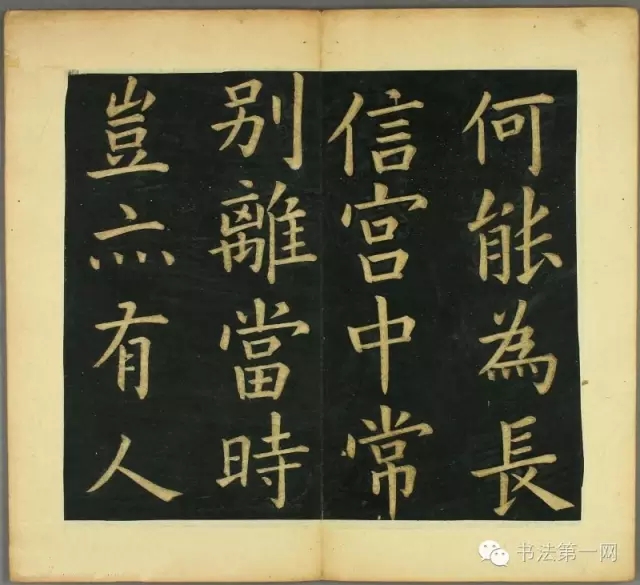 何能為長
信宮中常
别離當時
豈亦有人
书法第一网